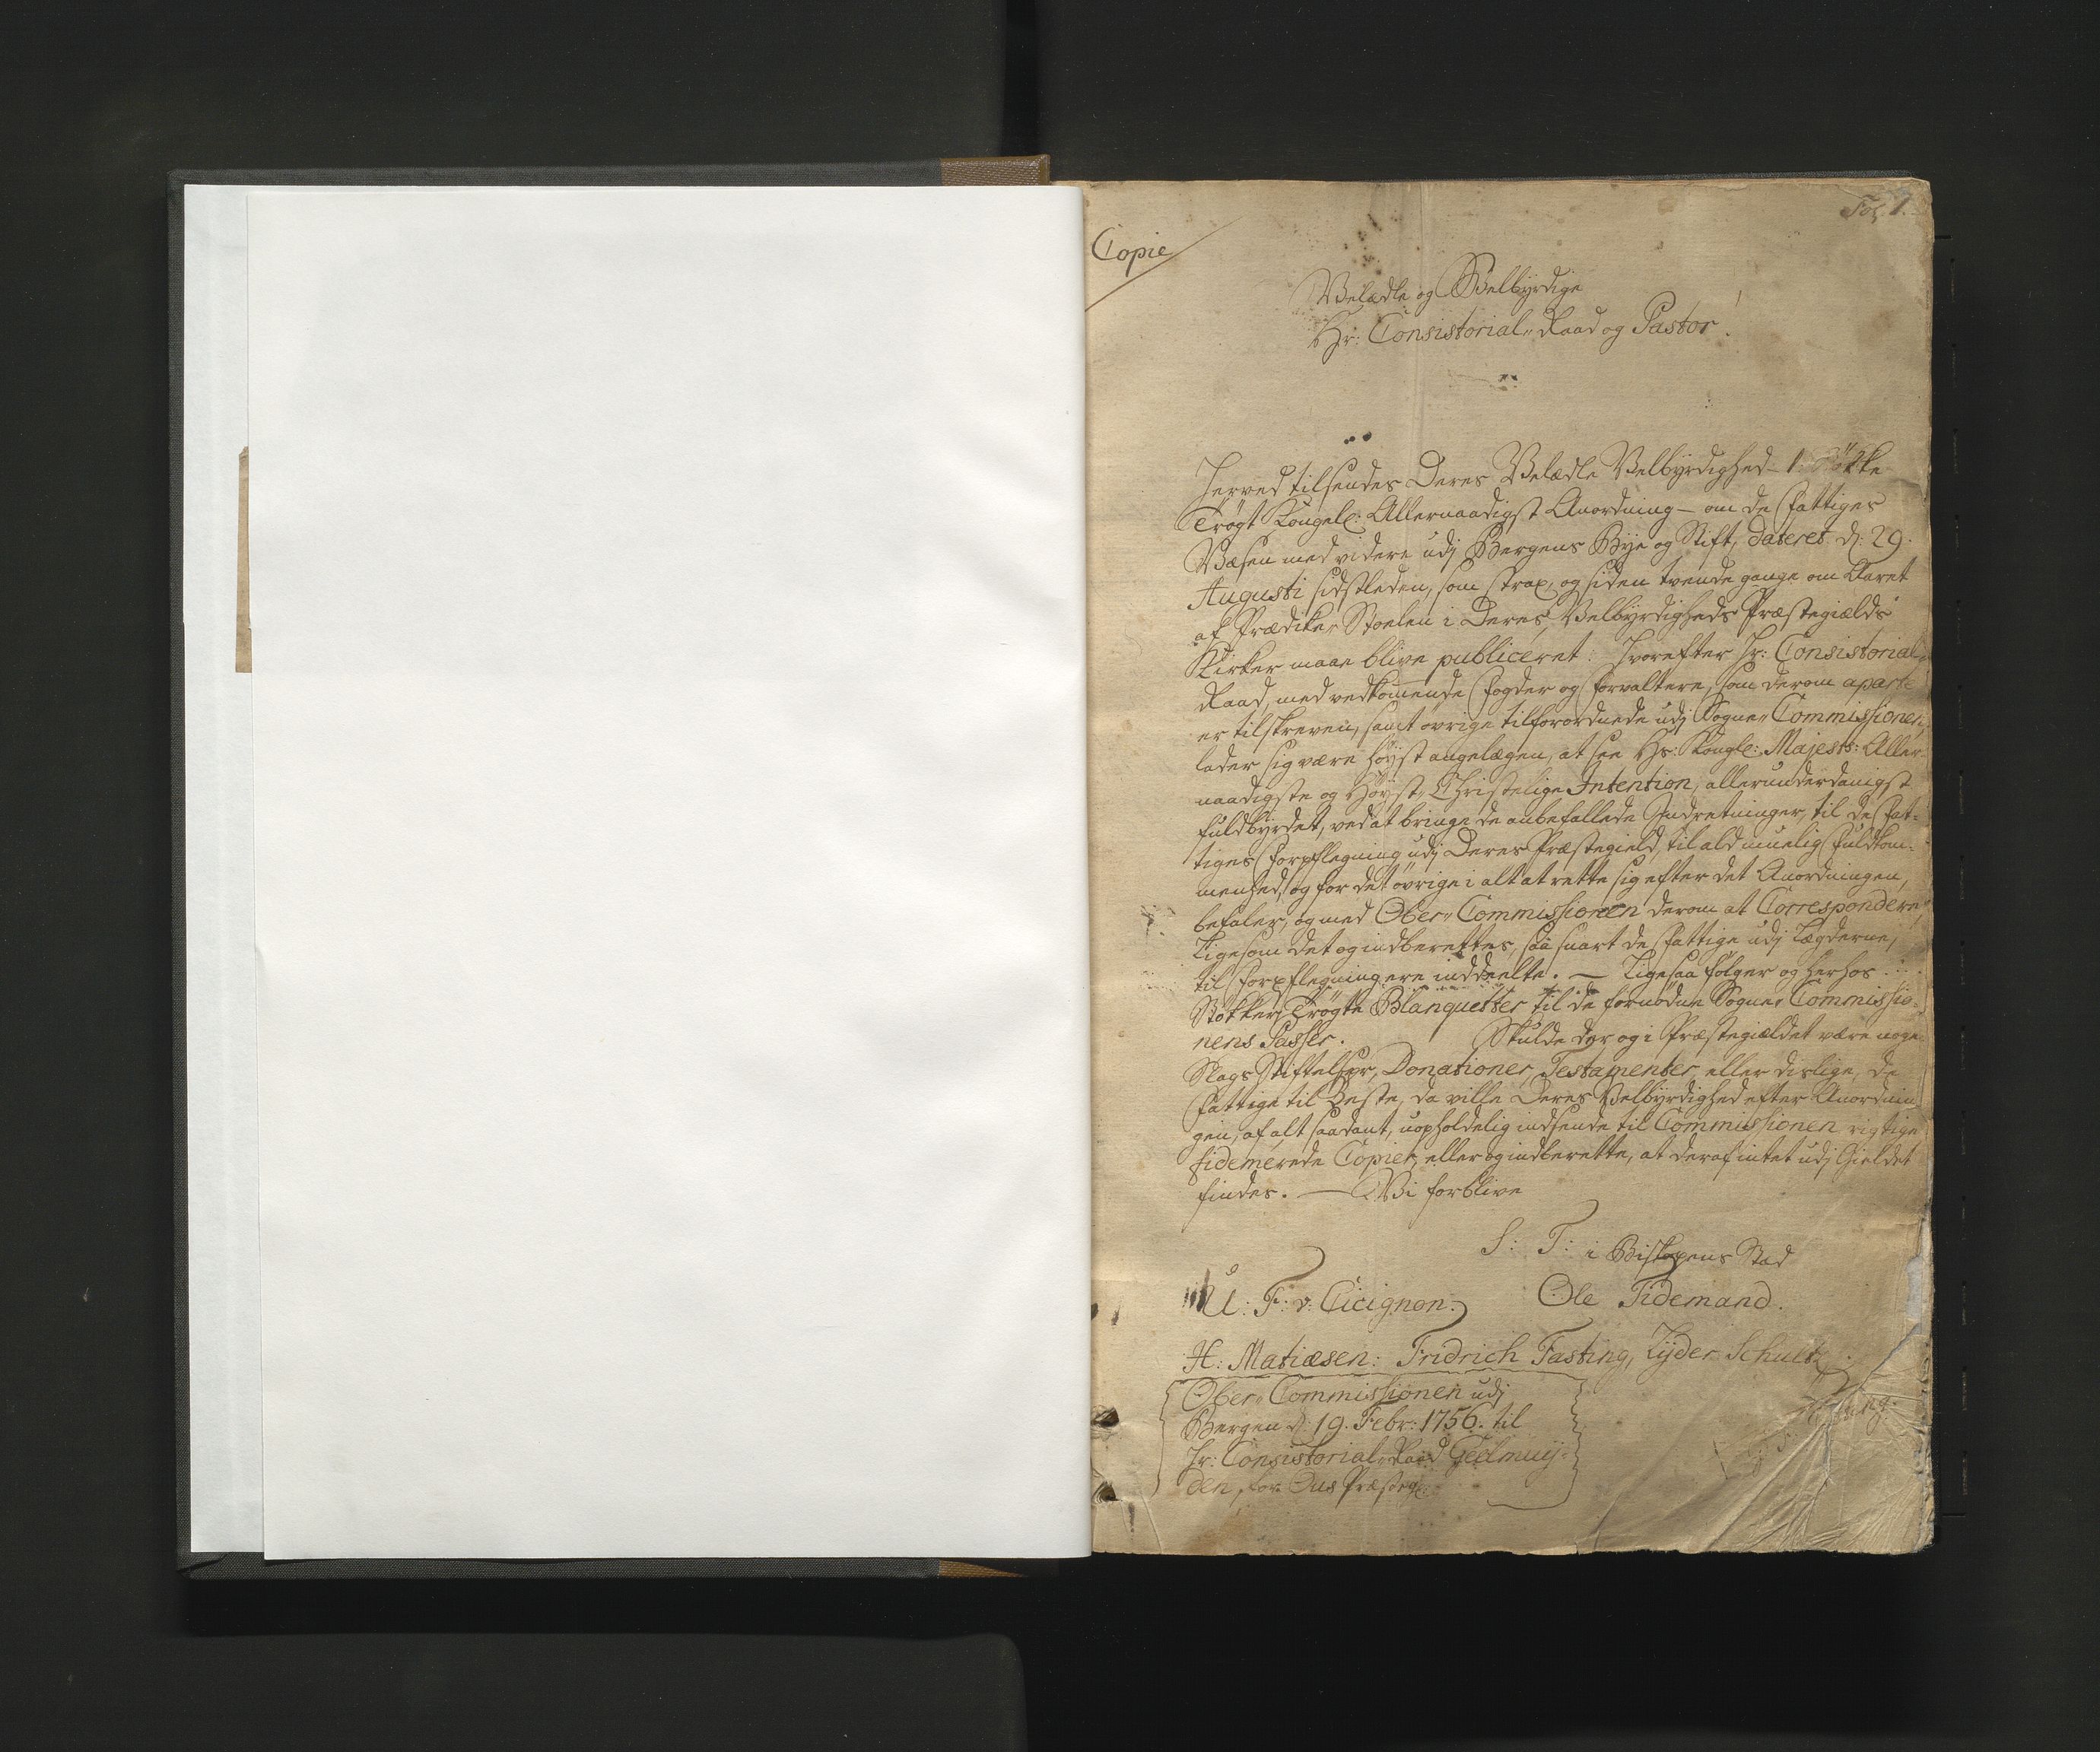 Fol 1.
Copie
Velædle og Velbyrdige
Hr: Consistorial-Raad og Pastor.
Herved tilsendes Deres Velædle Velbyrdighed 1 Støkke
Trøgt Kongel: Allernaadigst Anordning om de Fattiges
Væsen med videre udj Bergens Bye og Stift, dateret d: 29.
Augusti sidstleden, som strax, og siden tvende gange om Aaret
af Prædike-Stoelen i Deres Velbyrdigheds Præstegields
Kirker maae blive publiceret: Hvorefter Hr: Consistorial-
Raad, med vedkommende Fogder og Forvaltere, som derom aparte
er tilskreven, samt øvrige tilforordnede udj Sogne-Commissionen,
lader sig være høyst angelegen, at see Hs: Kongl: Majests: Aller-
naadigste og Høyst-Christelige Intention, allerunderdanigst
fuldbyrdet, ved at bringe de anbefallede Indretninger, til de Fat-
tiges Forpflegning udj Deres Præstegield, til ald muelig Fuldkom-
menhed, og for det øvrige i alt at rette sig efter det Anordningen,
befaler, og med Ober-Commissionen derom at Correspondere
Ligesom det og indberettes, saa snart de Fattige udj Lægderne,
til Forpflegning ere inddeelte. — Ligesaa følger og herhos
Støkker Trøgte Blanquetter til de fornødne Sogne-Commissio-
nens Passer. Skulde der og i Præstegieldet være noge
Slags Stiftelser, Donationer, Testamenter, eller deslige, de
Fattige til Beste, da ville Deres Velbyrdighed efter Anordnin-
gen, af alt saadant, uopholdelig indsende til Commissionen rigtige
fidemerede Copier, eller og indberette, at deraf intet udj Gieldet
findes. — Vi forblive
S: T: i Biskopens Stad
U: F: v: Cicignon. Ole Tidemand.
H: Matiæsen: Fridrich Fasting, Lyder Schultz.
Ober-Commissionen udj
Bergen d: 19. Febr: 1756. til
Hr: Consistorial-Raad Geelmuy-
den, for Ous Præsteg: